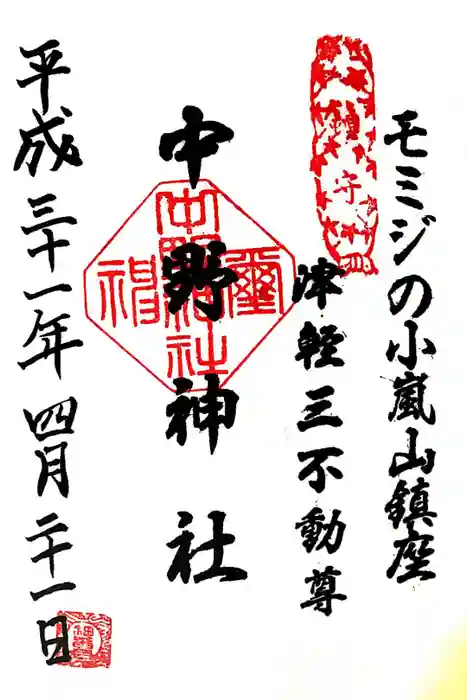 モミジの小嵐山鎮座
津軽三不動尊
中野神社
平成三十一年四月二十一日